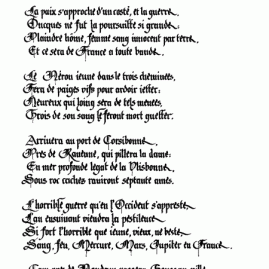 La paix s'approche d'un costé, et la guerre,
Oncques ne fut la poursuitte si grande:
Plaindre hõme, femme sang innocent par terre,
Et ce sera de France a toute bande.
Le Neron ieune dans le trois cheminees,
Fera de paiges vifs pour ardoir ietter:
Heureux qui loing sera de tels menees,
Trois de son sang le feront mort guetter.
Arrivera au port de Corsibonne,
Pres de Ravenne, qui pillera la dame:
En mer profonde legat de la Vlisbonne,
Souz roc cachez raviront septante ames.
L'horrible guerre qu'en l'Occident s'appreste
L'an ensuivant viendra la pestilence
Si fort l'horrible que ieune, vieux, ne beste,
Sang, feu, Mercure, Mars, Iupiter en France.